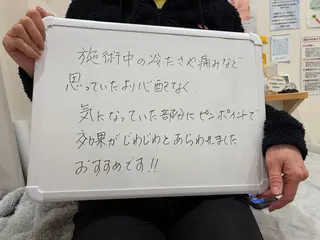 施術中の冷たさや痛みなど
思っていたより心配なく
気になっていた部分にピンポイントで
効果がじわじわとあらわれました
おすすめです!!